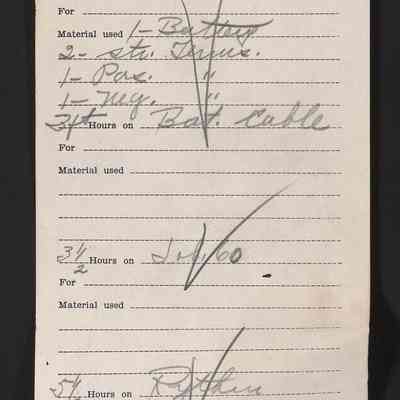 For
Material used 1- Battery
2- str. Terms.
1- Pos. "
1- Neg. "
Hours on Bat. Cable
For
Material used
3 1/2 Hours on Job 60
For
Material used
5 1/2 Hours on